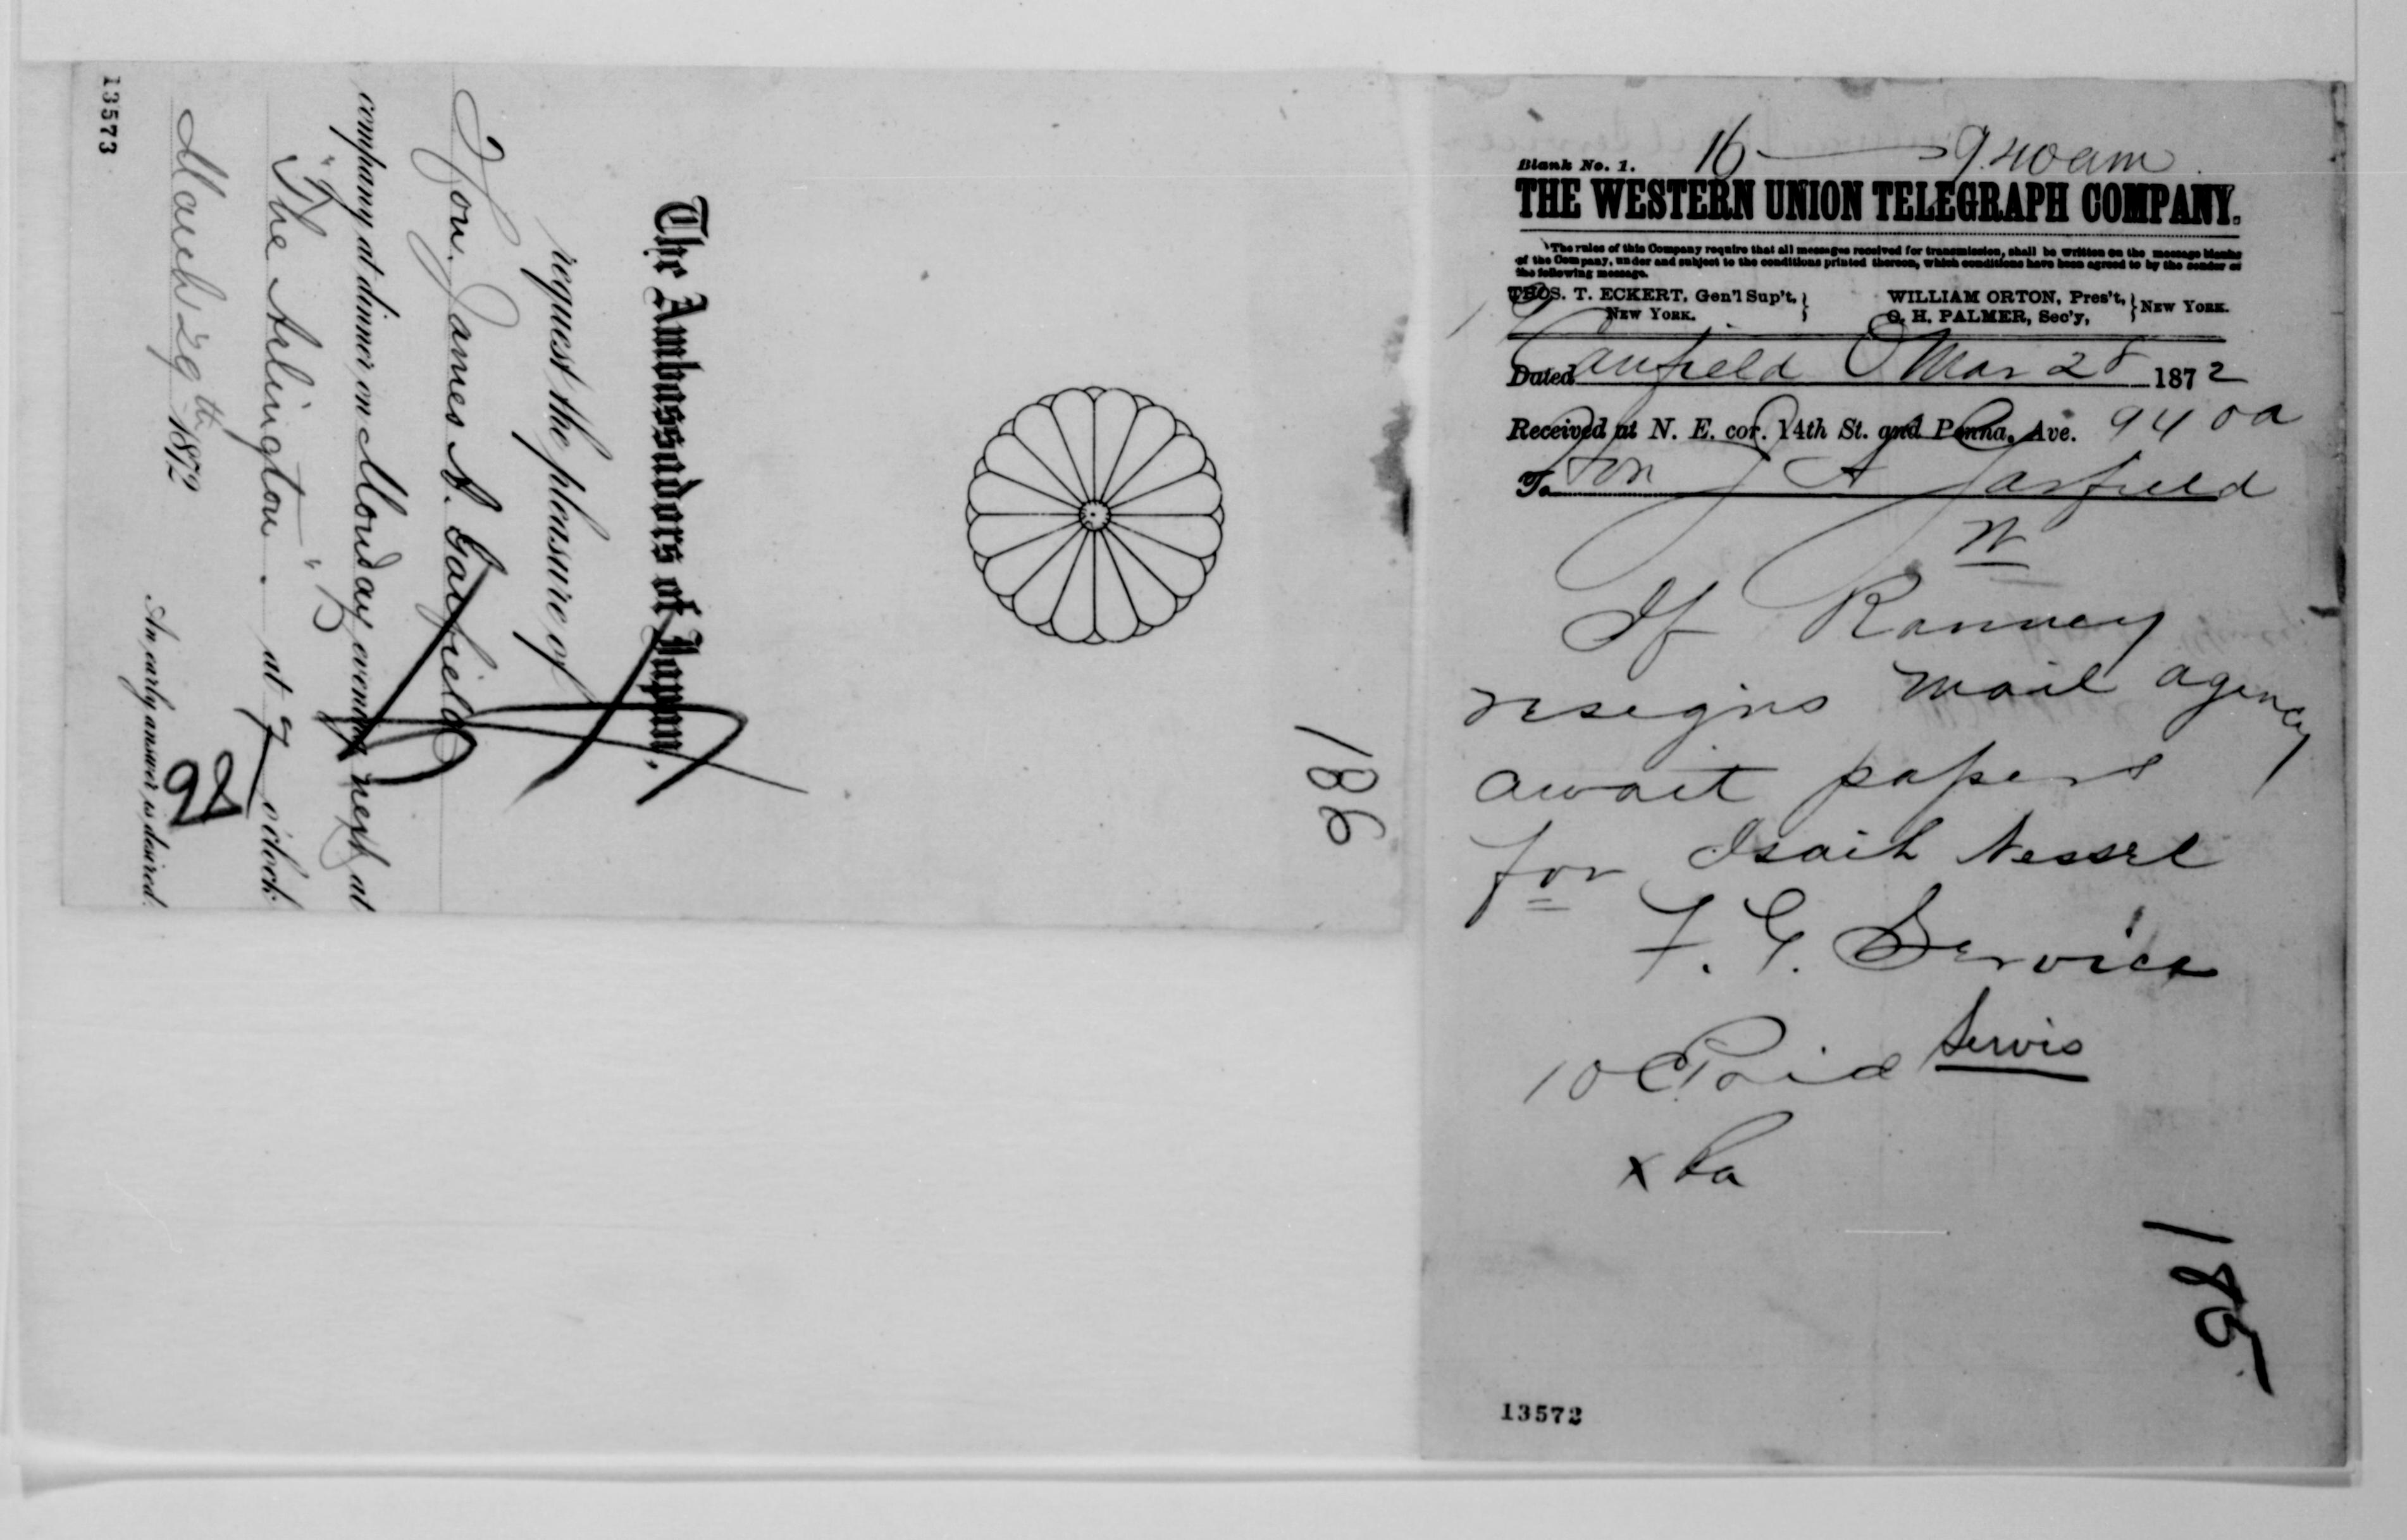 186
The Ambassadors of Japan,
request the pleasure of
Hon. James A. Garfield
company at dinner on Monday evening next at
"The Arlington." at 7 o'clock.
March 29th 1872
An early answer is desired.
98
13573
16 9.40 am
Blank No. 1.
THE WESTERN UNION TELEGRAPH COMPANY.
The rules of this Company require that all messages received for transmission, shall be written on the message blanks
of the Company, under and subject to the conditions printed thereon, which conditions have been agreed to by the sender of
the following message.
THOS. T. ECKERT, Gen'l Sup't, NEW YORK.
WILLIAM ORTON, Pres't,
O. H. PALMER, Sec'y, NEW YORK.
Dated Canfield O Mar 28 1872
Received at N. E. cor. 14th St. and Penna. Ave. 940 a
To Hon J A Garfield
If Ranney
resigns mail agency
await papers
for Isaih Nessel
F. G. Service
10 Paid Servis
x Ra
185
13572